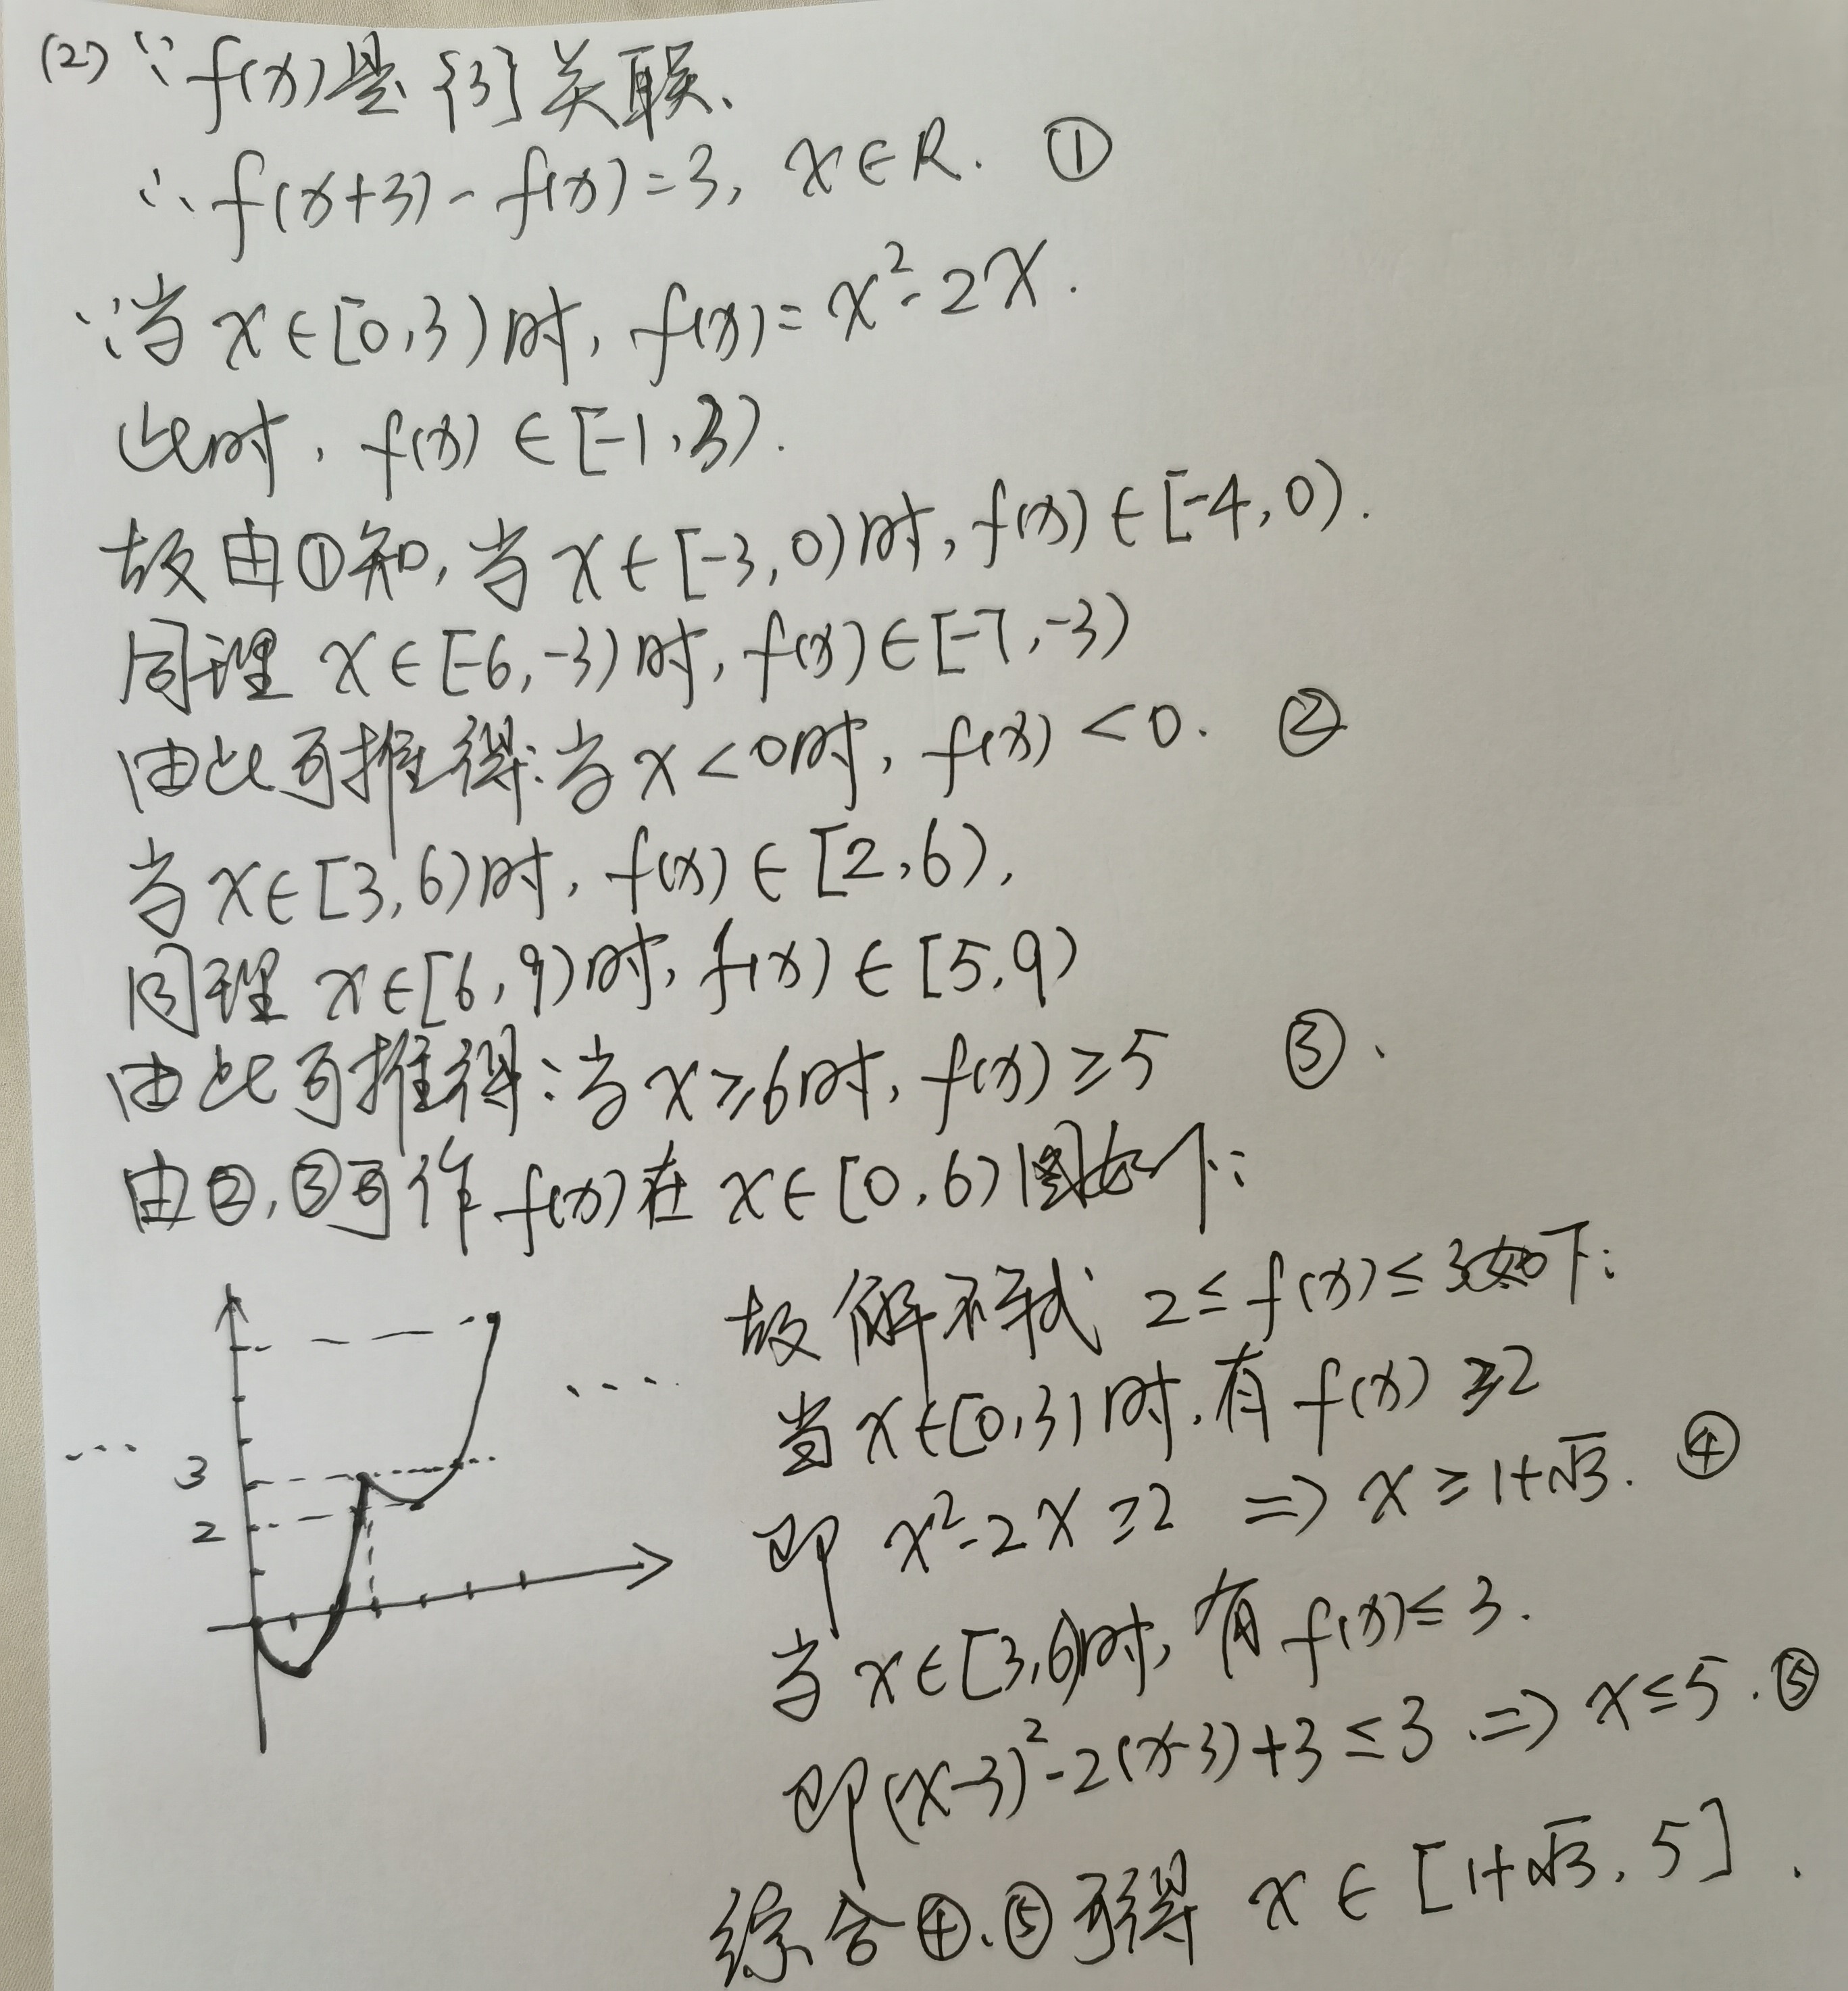 (2) ∵ f(x)是{3}关联、
∴ f(x+3)-f(x)=3, x∈R. ①
∵当x∈[0,3)时, f(x)=x²-2x.
此时, f(x)∈[-1,3).
故由①知,当x∈[-3,0)时,f(x)∈[-4,0).
同理 x∈[-6,-3)时, f(x)∈[-7,-3)
由此可推得:当x<0时, f(x)<0. ②
当x∈[3,6)时, f(x)∈[2,6),
同理 x∈[6,9)时, f(x)∈[5,9)
由此可推得:当x≥6时, f(x)≥5 ③、
由②,③可作f(x)在x∈[0,6)图如下:
故解不等式 2≤f(x)≤3如下:
当x∈[0,3)时,有f(x)≥2
即 x²-2x≥2 ⇒ x≥1+√3. ④
当x∈[3,6)时,有f(x)≤3.
即(x-3)²-2(x-3)+3≤3.⇒ x≤5.⑤
综合④、⑤可得 x∈[1+√3,5].
...
...
3
2